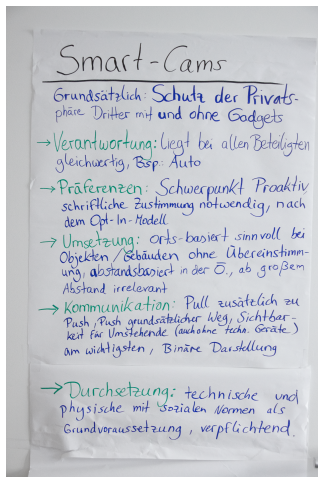 Smart-Cams
Grundsätzlich: Schutz der Privats-
phäre Dritter mit und ohne Gadgets
→ Verantwortung: liegt bei allen Beteiligten
gleichwertig, Bsp: Auto
→ Präferenzen: Schwerpunkt Proaktiv
schriftliche Zustimmung notwendig, nach
dem Opt-In-Modell
→ Umsetzung: orts-basiert sinnvoll bei
Objekten / Gebäuden ohne Übereinstimm-
ung, abstandsbasiert in der Ö., ab großem
Abstand irrelevant
→ Kommunikation: Pull zusätzlich zu
Push, Push grundsätzlicher Weg, Sichtbar-
keit für Umstehende (auch ohne techn. Geräte)
am wichtigsten, Binäre Darstellung
→ Durchsetzung: technische und
physische mit sozialen Normen als
Grundvoraussetzung, verpflichtend.